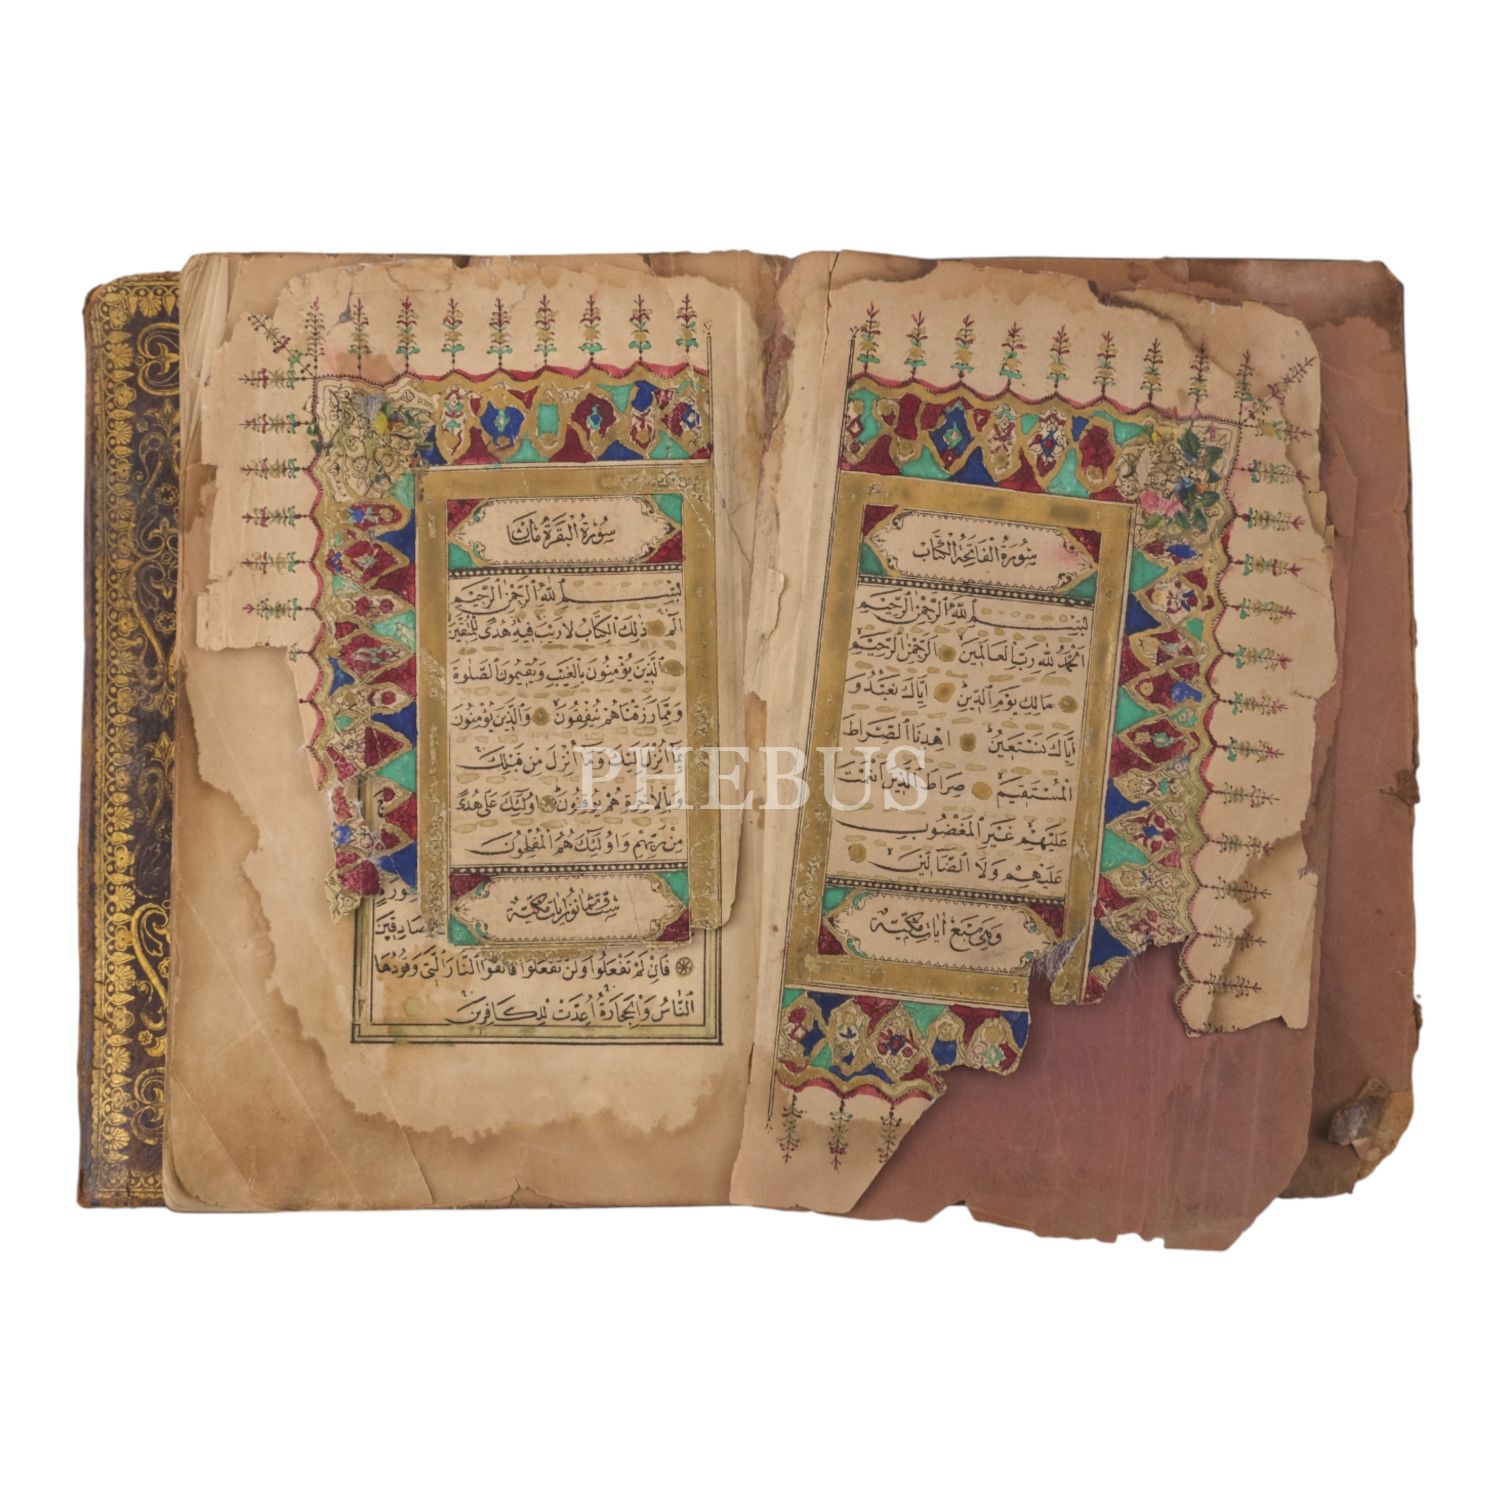 سُورَةُ الْفَاتِحَةِ الْكِتَابِ
بِسْمِ اللهِ الرَّحْمٰنِ الرَّحِيمِ
اَلْحَمْدُ لِلهِ رَبِّ الْعَالَمِينَ الرَّحْمٰنِ الرَّحِيمِ
مَالِكِ يَوْمِ الدِّينِ اِيَّاكَ نَعْبُدُ وَ
اِيَّاكَ نَسْتَعِينُ اِهْدِنَا الصِّرَاطَ
الْمُسْتَقِيمَ صِرَاطَ الَّذِينَ اَنْعَمْتَ
عَلَيْهِمْ غَيْرِ الْمَغْضُوبِ
عَلَيْهِمْ وَلَا الضَّالِّينَ
وَهِيَ سَبْعُ اٰيَاتٍ مَكِّيَّة
سُورَةُ الْبَقَرَةِ مِائَتَا
بِسْمِ اللهِ الرَّحْمٰنِ الرَّحِيمِ
الٓمٓ ذٰلِكَ الْكِتَابُ لَا رَيْبَ فِيهِ هُدًى لِلْمُتَّقِينَ
اَلَّذِينَ يُؤْمِنُونَ بِالْغَيْبِ وَيُقِيمُونَ الصَّلٰوةَ
وَمِمَّا رَزَقْنَاهُمْ يُنْفِقُونَ وَالَّذِينَ يُؤْمِنُونَ
بِمَا اُنْزِلَ اِلَيْكَ وَمَا اُنْزِلَ مِنْ قَبْلِكَ
وَبِالْاٰخِرَةِ هُمْ يُوقِنُونَ اُولٰئِكَ عَلٰى هُدًى
مِنْ رَبِّهِمْ وَاُولٰئِكَ هُمُ الْمُفْلِحُونَ
صَادِقِينَ
فَاِنْ لَمْ تَفْعَلُوا وَلَنْ تَفْعَلُوا فَاتَّقُوا النَّارَ الَّتِي وَقُودُهَا
النَّاسُ وَالْحِجَارَةُ اُعِدَّتْ لِلْكَافِرِينَ
PHEBUS